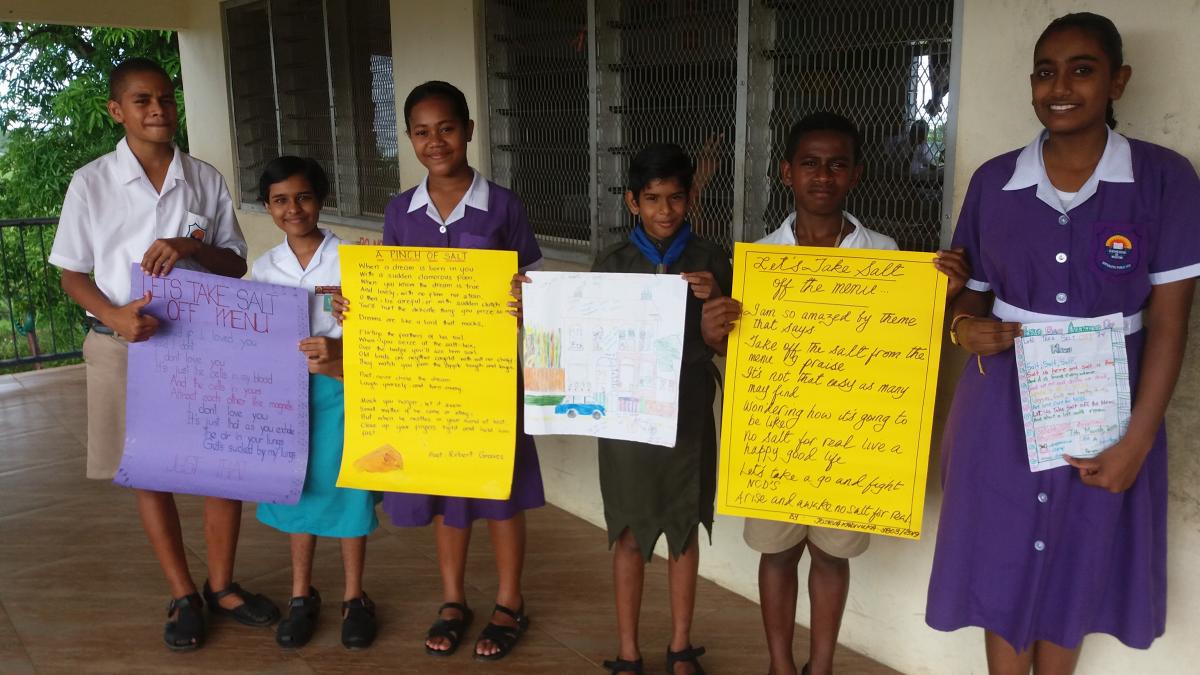 LETS TAKE SALT
OFF MENU
If I loved you
I don't
I don't love you
It's just the cells in my blood
And the cells in yours
Attract each other like magnets
I don't love you
It's just that as you exhale
the air in your lungs
Gets sucked by my lungs
JUST THAT
A PINCH OF SALT
When a dream is born in you
With a sudden clamorous pain,
When you know the dream is true
And lovely, with no flaw nor stain,
O then, be careful, or with sudden clutch
You'll hurt the delicate thing you prize so
Dreams are like a bird that mocks,
Flirting the feathers of his tail.
When you seize at the salt-box,
Over the hedge you'll see him sail.
Old birds are neither caught with salt nor chaff
They watch you from the apple bough and laugh.
Poet, never chase the dream.
Laugh yourself, and turn away.
Mask your hunger, let it seem
Small matter if he come or stay;
But when he nestles in your hand at last,
Close up your fingers tight and hold him
fast.
Poet: Robert Graves
Let's Take Salt
off the menu...
I am so amazed by theme
that says
Take off the salt from the
menu my praise
It's not that easy as many
may find
Wondering how it's going to
be like!
No salt for real live a
happy good life
Let's take a go and fight
NCD's
Arise and awake no salt for real
BY
Salt, Salt, Salt
Salt is here and salt is
Let us take salt off the Menu